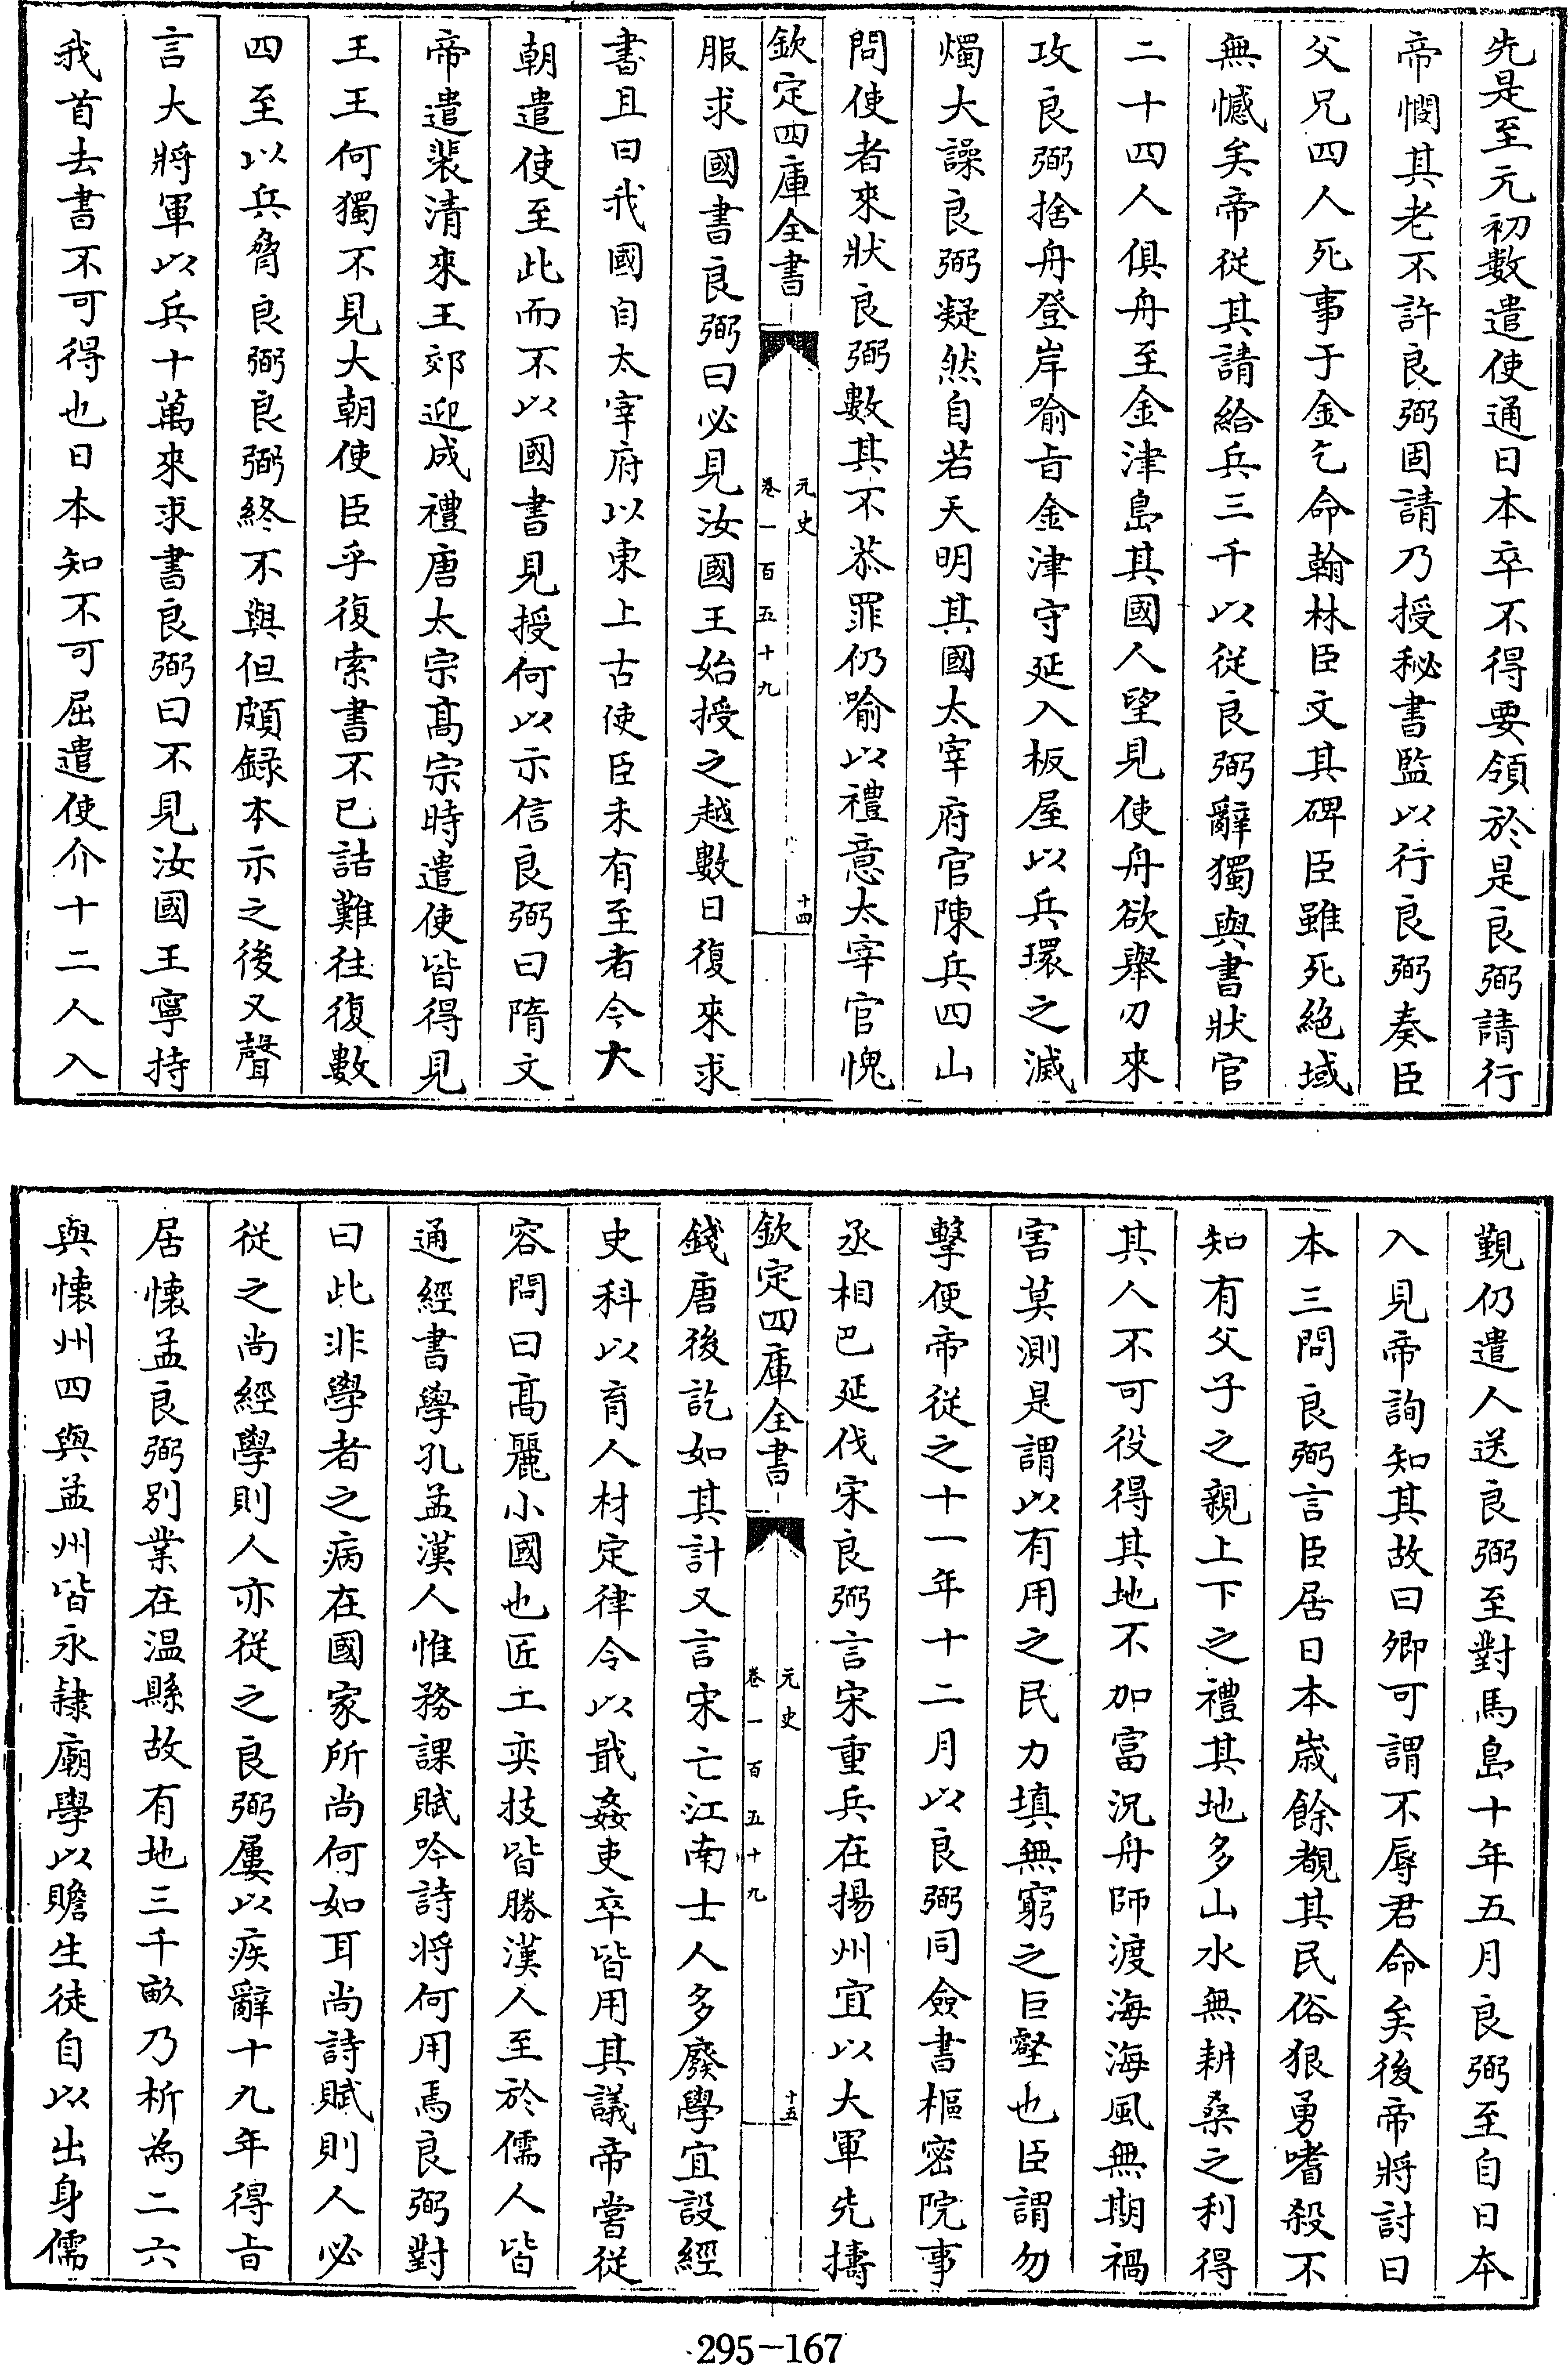 先是至元初數遣使通日本卒不得要領於是良弼請行
帝憫其老不許良弼固請乃授秘書監以行良弼奏臣
父兄四人死事于金乞命翰林臣文其碑臣雖死絶域
無憾矣帝從其請給兵三千以從良弼辭獨與書狀官
二十四人俱舟至金津島其國人望見使舟欲舉刃來
攻良弼捨舟登岸喻㫖金津守延入板屋以兵環之滅
燭大譟良弼凝然自若天明其國太宰府官陳兵四山
問使者來狀良弼數其不恭罪仍喻以禮意太宰官愧
欽定四庫全書
元史
卷一百五十九
十四
服求國書良弼曰必見汝國王始授之越數日復來求
書且曰我國自太宰府以東上古使臣未有至者今大
朝遣使至此而不以國書見授何以示信良弼曰隋文
帝遣裴清來王郊迎成禮唐太宗髙宗時遣使皆得見
王王何獨不見大朝使臣乎復索書不已詰難往復數
四至以兵脅良弼良弼終不與但頗録本示之後又聲
言大將軍以兵十萬來求書良弼曰不見汝國王寧持
我首去書不可得也日本知不可屈遣使介十二人入
覲仍遣人送良弼至對馬島十年五月良弼至自日本
入見帝詢知其故曰卿可謂不辱君命矣後帝將討日
本三問良弼言臣居日本嵗餘覩其民俗狠勇嗜殺不
知有父子之親上下之禮其地多山水無耕桑之利得
其人不可役得其地不加富況舟師渡海海風無期禍
害莫測是謂以有用之民力填無窮之巨壑也臣謂勿
擊便帝從之十一年十二月以良弼同僉書樞密院事
丞相巴延伐宋良弼言宋重兵在揚州宜以大軍先擣
欽定四庫全書
元史
卷一百五十九
十五
錢唐後訖如其計又言宋亡江南士人多廢學宜設經
史科以育人材定律令以戢姦吏卒皆用其議帝嘗從
容問曰髙麗小國也匠工奕技皆勝漢人至於儒人皆
通經書學孔孟漢人惟務課賦吟詩将何用焉良弼對
曰此非學者之病在國家所尚何如耳尚詩賦則人必
從之尚經學則人亦從之良弼屢以疾辭十九年得㫖
居懐孟良弼別業在温縣故有地三千畝乃析為二六
與懐州四與孟州皆永隷廟學以贍生徒自以出身儒
295-167